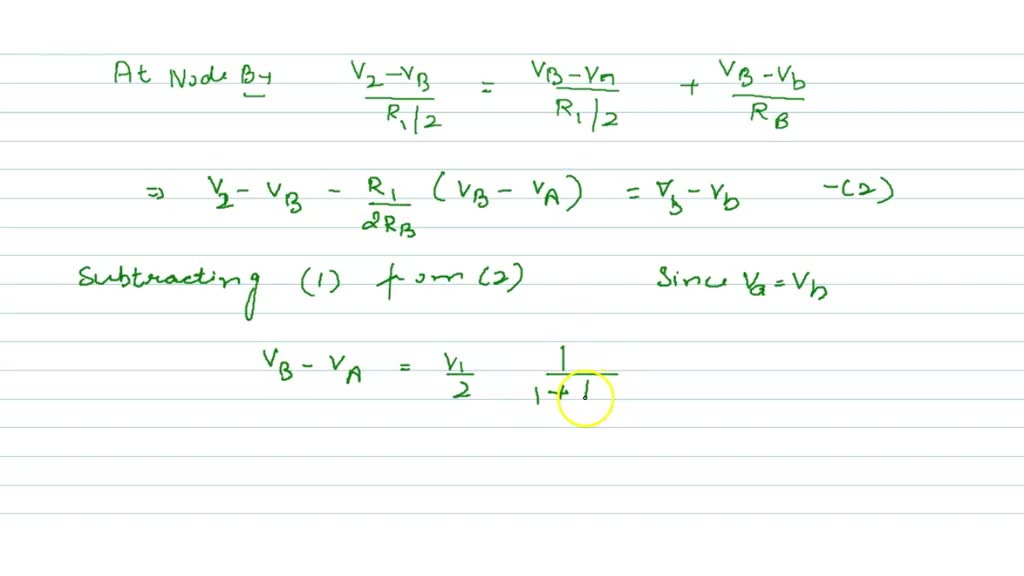 At Node B→ (V2 - VB)/(R1/2) = (VB - Vn)/(R1/2) + (VB - Vb)/RB
⇒ V2 - VB - R1/2RB (VB - VA) = Vb - Vb -(2)
Subtracting (1) from (2) Since Va = Vb
VB - VA = V1/2 1/(1 + 1